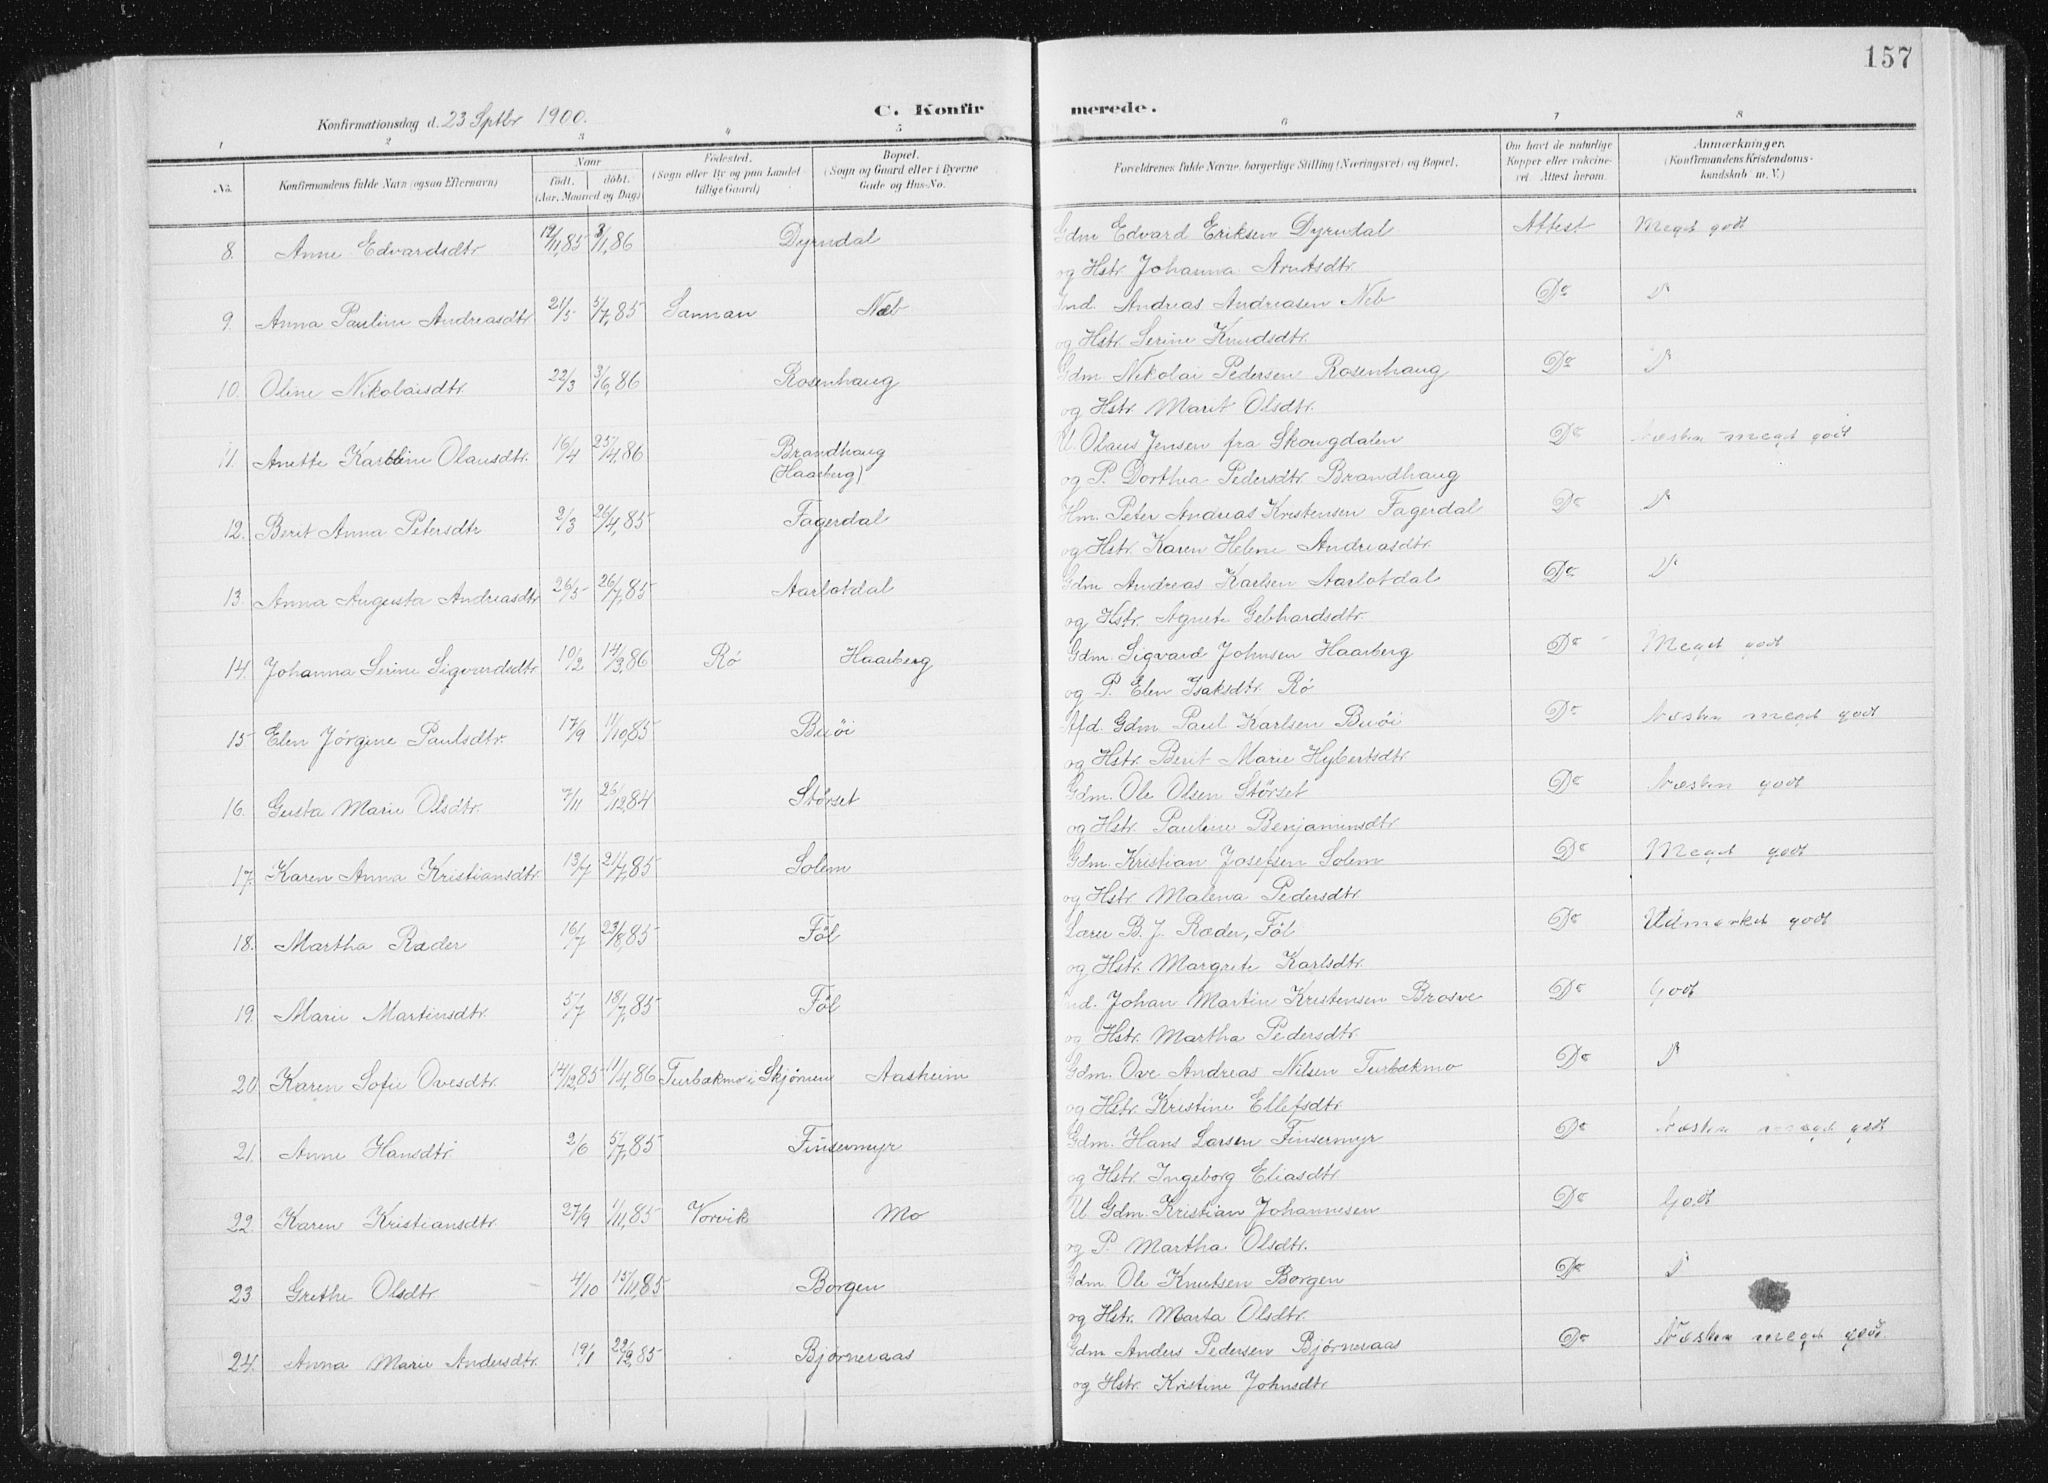 157
Konfirmationsdag d. 23 Septbr 1900.
C. Konfirmerede.
1 2 3 4 5 6 7 8
No. Konfirmandens fulde Navn (ogsaa Efternavn) Naar født. døbt. (Aar, Maaned og Dag) Fødested. (Sogn eller By og paa Landet tillige Gaard) Bopæl. (Sogn og Gaard eller i Byerne Gade og Hus-No. Forældrenes fulde Navne, borgerlige Stilling (Næringsvei) og Bopæl. Om havt de naturlige Kopper eller vakcineret. Attest herom. Anmærkninger. (Konfirmandens Kristendomskundskab m. V.)
8. Anne Edvardsdtr 12/11,85 3/1,86 Dyrndal Gdm Edvard Eriksen Dyrndal Attest Meget godt
og Hstr. Johanna Arntsdtr.
9. Anna Pauline Andreasdtr 21/5 5/7,85 Sannan Næb Ind. Andreas Andreasen Neb Do D
og Hstr. Serine Knudsdtr.
10. Oline Nikolaisdtr. 22/3 3/6,86 Rosenhaug Gdm Nikolai Pedersen Rosenhaug Do D
og Hstr. Marit Olsdtr.
11. Anette Karoline Olausdtr. 16/4 25/4,86 Brandhaug (Haarberg) U. Olaus Jensen fra Skougdalen Do Næsten meget godt
og P. Dorthea Pedersdtr Brandhaug
12. Berit Anna Petersdtr 2/3 26/4,85 Fagerdal Hm. Peter Andreas Kristensen Fagerdal Do D
og Hstr. Karen Helene Andreasdtr.
13. Anna Augusta Andreasdtr 26/5 26/7,85 Aarlotdal Gdm Andreas Karlsen Aarlotdal Do D
og Hstr. Agnete Gebhardsdtr.
14. Johanna Serine Sigvardsdtr 10/2 14/3,86 Rø Haarberg Gdm. Sigvard Johnsen Haarberg Do Meget godt
og P. Elen Isaksdtr. Rø
15 Elen Jørgine Paulsdtr. 17/9 11/10,85 Buøi Afd. Gdm. Paul Karlsen Buøi Do Næsten meget godt
og Hstr. Berit Marie Hybertsdtr.
16. Gusta Marie Olsdtr. 7/11 26/12,84 Størset Gdm. Ole Olsen Størset Do Næsten godt
og Hstr. Pauline Benjaminsdtr
17. Karen Anna Kristiansdtr. 13/7 21/7,85 Solem Gdm. Kristian Josefsen Solem Do Meget godt
og Hstr. Malena Pedersdtr.
18. Martha Ræder 16/7 23/8,85 Føl Lærer B. J. Ræder, Føl Do Udmærket godt
og Hstr. Margrete Karlsdtr.
19. Marie Martinsdtr. 5/7 18/7,85 Føl Ind. Johan Martin Kristensen Brosve Do Godt
og Hstr. Martha Pedersdtr.
20. Karen Sofie Ovesdtr. 14/12,85 11/4,86 Turbækmo i Skjørnen Aasheim Gdm. Ove Andreas Nilsen Turbækmo Do D
og Hstr. Kristine Ellefsdtr.
21. Anne Hansdtr. 2/6 5/7,85 Finsermyr Gdm. Hans Larsen Finsermyr Do Næsten meget godt
og Hstr. Ingeborg Eliasdtr.
22. Karen Kristiansdtr. 27/9 1/11,85 Vorvik Mo U. Gdm. Kristian Johannesen Do Godt
og P. Martha Olsdtr.
23. Grethe Olsdtr. 4/10 15/11,85 Borgen Gdm Ole Knutsen Borgen Do D
og Hstr. Marta Olsdtr.
24. Anna Marie Andersdtr. 19/1 22/2,85 Bjørneraas Gdm Anders Pedersen Bjørneraas Do Næsten meget godt
og Hstr. Kristine Johnsdtr